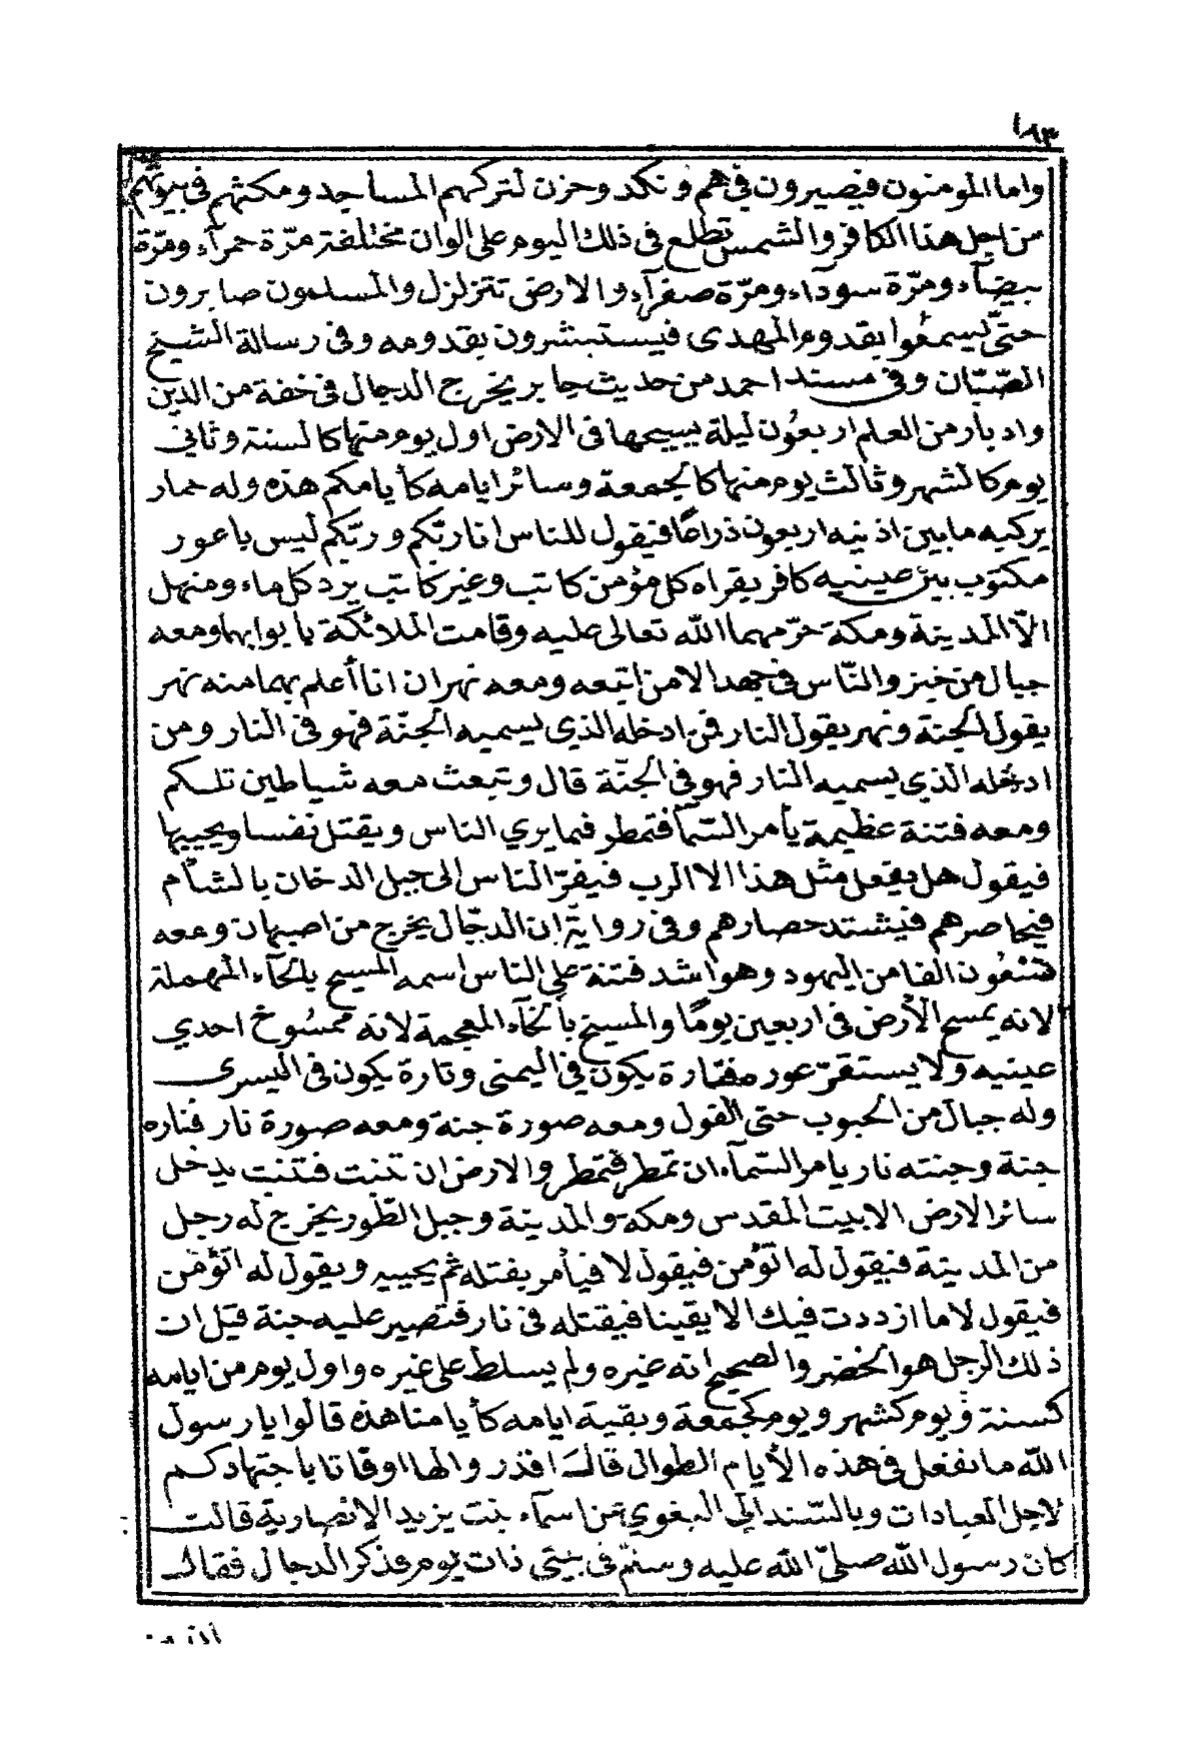 ١٨٣
واما المومنون فيصيرون في هم ونكد وحزن لتركهم المساجد ومكثهم في بيوتهم
من اجل هذا الكافر والشمس تطلع فى ذلك اليوم على الوان مختلفة مرّة حمرآء ومرّة
بيضآء ومرّة سودآء ومرّة صفرآء والارض تتزلزل والمسلمون صابرون
حتّى يسمعُوا بقدوم المهدى فيستبشرون بقدومه وفى رسالة الشيخ
الصّبّان وفى مسند احمد من حديث جابر يخرج الدجال فى خفة من الدين
وادبار من العلم اربعُون ليلة يسيحها فى الارض اول يوم منها كالسنة وثانى
يوم كالشهر وثالث يوم منها كالجمعة وسائر ايامه كأيامكم هذه وله حمار
يركبه مابين اذنيه اربعون ذراعًا فيقول للناس انا ربّكم وربّكم ليس باعور
مكتوب بين عينيه كافر يقراه كل مؤمن كاتب وغير كاتب يرد كل ماء ومنهل
الّا المدينة ومكة حرّمهما الله تعالى عليه وقامت الملائكة بابوابها ومعه
جبال من خبز والنّاس فى جهد الا من اتبعه ومعه نهران انا أعلم بهما منه نهر
يقول الجنة ونهر يقول النار فمن ادخله الذي يسميه الجنّة فهو فى النار ومن
ادخله الذي يسميه النار فهو فى الجنّة قال وتبعث معه شياطين تلسكم
ومعه فتنة عظيمة يأمر السّمآ فتمطر فيما يري الناس ويقتل نفسا ويحييها
فيقول هل يفعل مثل هذا الا الرب فيفرّ الناس الى جبل الدخان بالشأم
فيحاصرهم فيشتد حصارهم وفى رواية ان الدجّال يخرج من اصبهان ومعه
سبعُون الفا من اليهود وهو اشد فتنة على الناس اسمه المسيح بالحآء المهملة
لانه يمسح الأرض فى اربعين يومًا والمسيخ بالخآء المعجمة لانه ممسُوخ احدي
عينيه ولا يستقرّ عوره فتارة يكون في اليمنى وتارة يكون فى اليسرى
وله جبال من الحبوب حتى الفول ومعه صورة جنة ومعه صورة نار فناره
جنة وجنته نار يامر السّمآء ان تمطر فتمطر والارض ان تنبت فتنبت يدخل
سائر الارض الا بيت المقدس ومكه والمدينة وجبل الطّور يخرج له رجل
من المدينة فيقول له اتؤمن فيقول لا فيأمر بقتله ثم يحييه ويقول له اتؤمن
فيقول لا ما ازددت فيك الا يقينا فيقتله فى نار فتصير عليه جنة قيل ان
ذلك الرجل هو الخضر والصحيح انه غيره ولم يسلط على غيره واول يوم من ايامه
كسنة ويوم كشهر ويوم كجمعة وبقية ايامه كأيامنا هذه قالوا يا رسول
الله ما نفعل فى هذه الأيام الطوال قال اقدروا لها اوقاتا باجتهادكم
لاجل العبادات وبالسّند الى البغوي عن اسمآء بنت يزيد الانصارية قالت
كان رسول الله صلىّ الله عليه وسلّم فى بيتى ذات يوم فذكر الدجال فقال